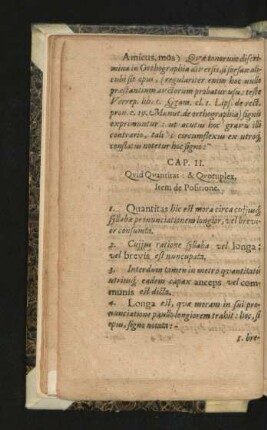 Amicus, mòs) Quæ tonorum discri-
mina in Orthographia
cubi sit opus, (regulariter enim hoc
præstantium auctorum probatur usu: teste
Verrep. lib. 1. cl. 1. Lips. de rect.
pron. c. 19. Manut. de orthographia) signis
exprimuntur: ut acutus hoc gravis illi
contrario, tali circumflexus ex utroq;
conflatus notetur hoc signo:
CAP. II.
Quid Quantitas: & Quotuplex.
Item de Positione.
1. Quantitas hic est mora circa cujusq;
syllabæ pronunciationem longior, vel brevi-
or consumta.
2. Cujus ratione syllaba vel longa:
vel brevis est nuncupata,
3. Interdum tamen in metro quantitatis
utriusq; eadem capax anceps vel com-
munis est dicta.
4. Longa est, quæ moram in sui pro-
nunciatione paullo longiorem trahit: hoc, si
opus, signo notata: -
5. bre-